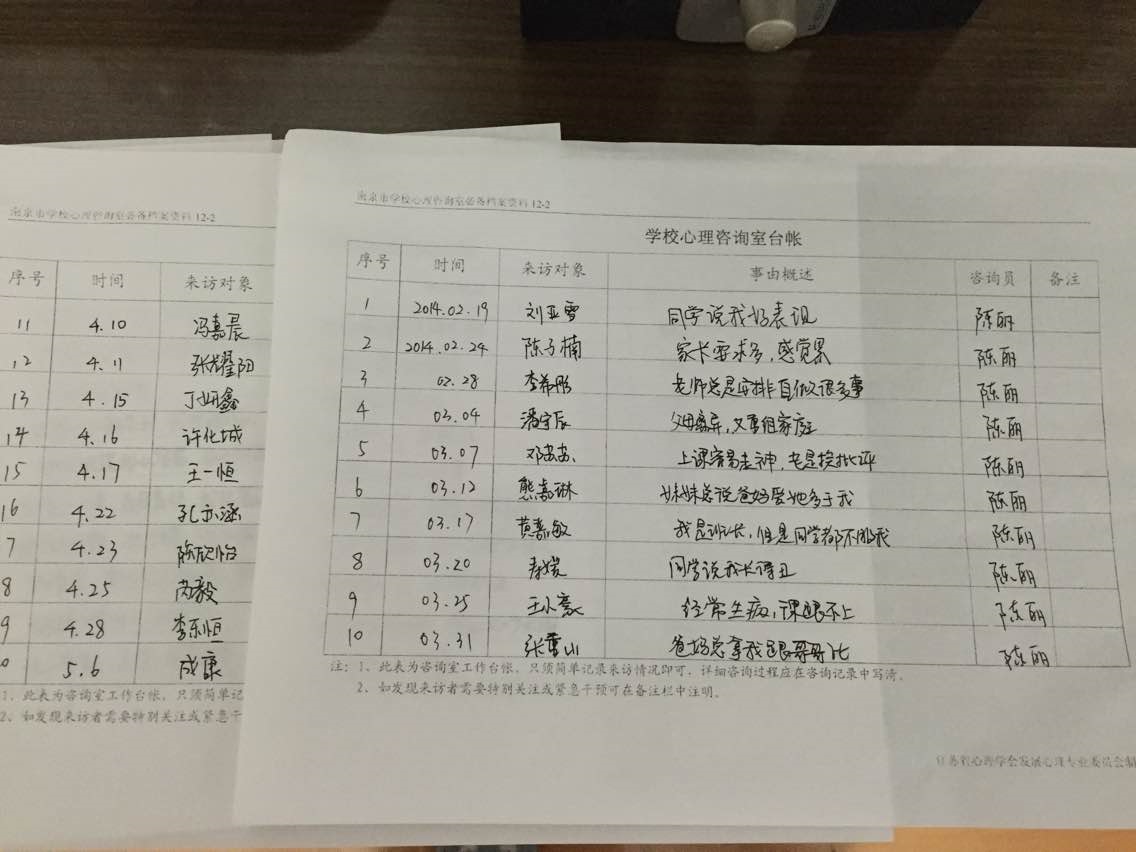 南京市学校心理咨询室必备档案资料 12-2
序号 时间 来访对象
11 4.10 冯嘉晨
12 4.11 张耀阳
13 4.15 丁姻鑫
14 4.16 许化城
15 4.17 王一恒
16 4.22 孔亦涵
7 4.23 陈欣怡
8 4.25 芮毅
9 4.28 李东恒
0 5.6 成康
1、此表为咨询室工作台帐，只须简单记
2、如发现来访者需要特别关注或紧急干
南京市学校心理咨询室必备档案资料 12-2
学校心理咨询室台帐
序号 时间 来访对象 事由概述 咨询员 备注
1 2014.02.19 刘亚雪 同学说我好表现 陈丽
2 2014.02.24 陈子楠 家长要求多，感觉累 陈丽
3 02.28 李希彤 老师总是安排自做很多事 陈丽
4 03.04 潘宇辰 父母离异，又重组家庭 陈丽
5 03.07 邓茜茜 上课容易走神，老是挨批评 陈丽
6 03.12 熊嘉琳 妹妹总说爸妈爱她多于我 陈丽
7 03.17 黄嘉敏 我是班长，但是同学都不服我 陈丽
8 03.20 同学说我长得丑 陈丽
9 03.25 王小豪 经常生病，课跟不上 陈丽
10 03.31 张雪小 爸妈总拿我跟哥哥比 陈丽
注：1、此表为咨询室工作台帐，只须简单记录来访情况即可，详细咨询过程应在咨询记录中写清。
2、如发现来访者需要特别关注或紧急干预可在备注栏中注明。
江苏省心理学会发展心理专业委员会制